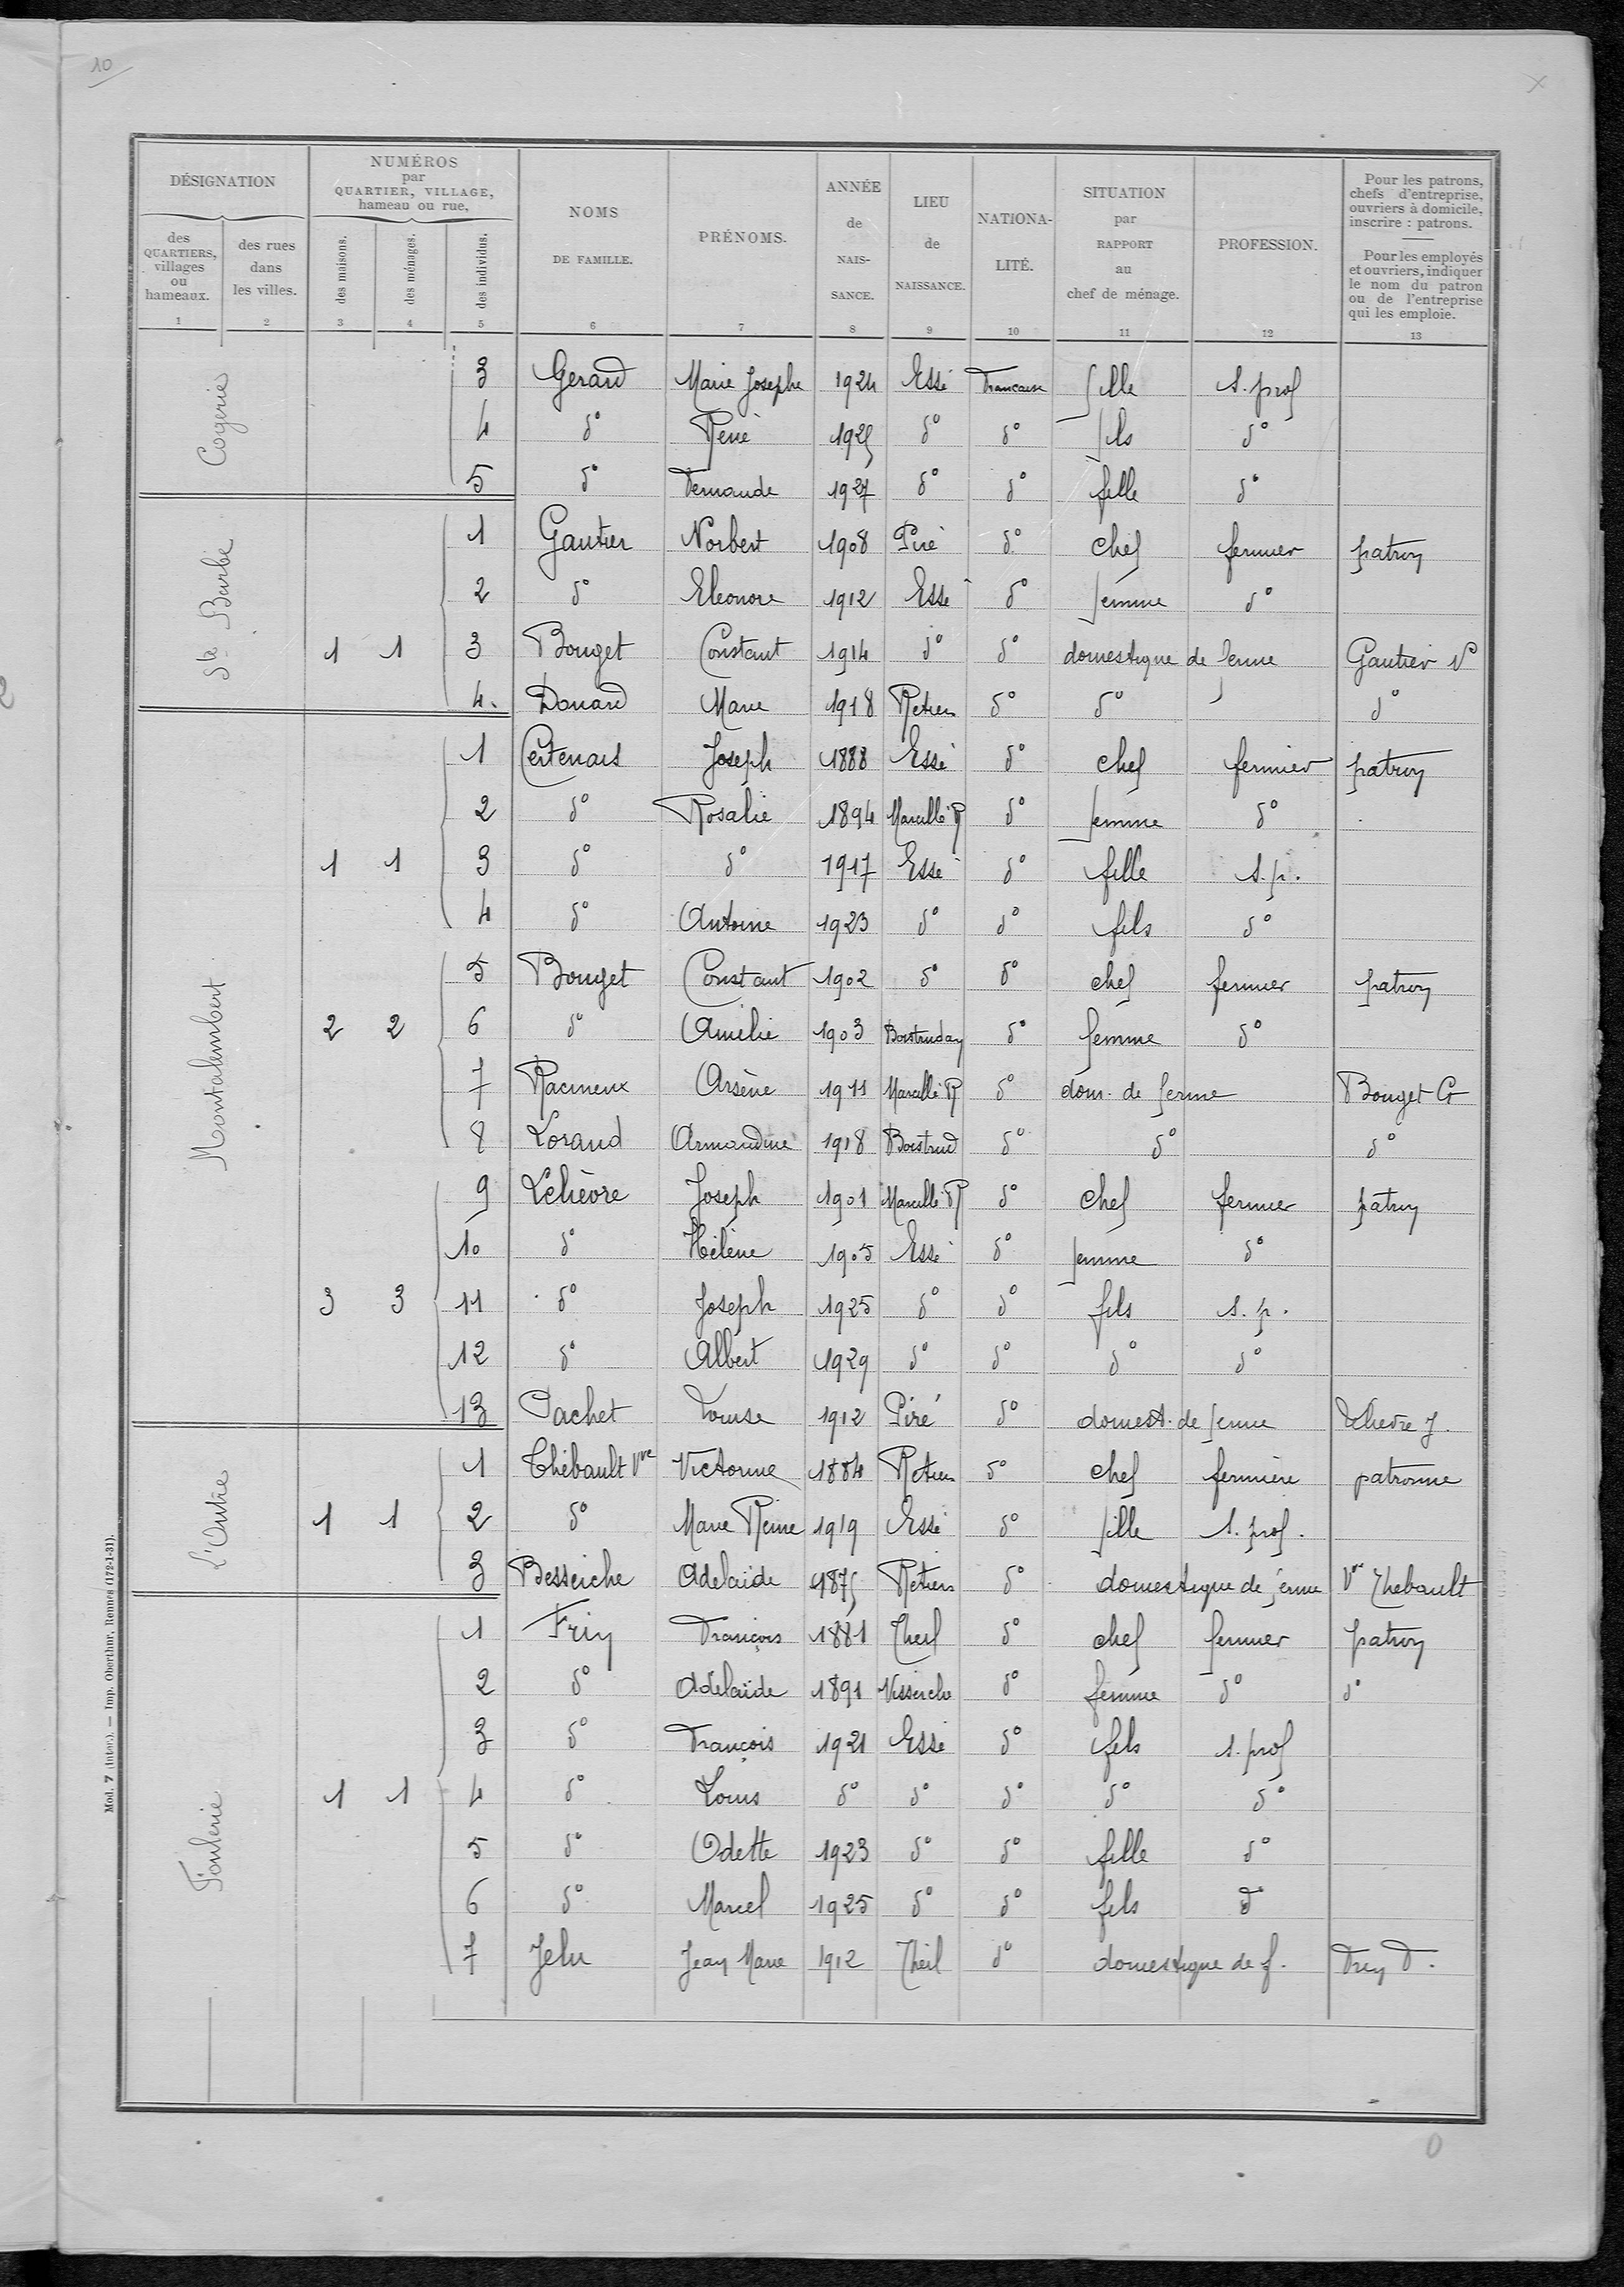 10
DÉSIGNATION
NUMÉROS
par
QUARTIER, VILLAGE,
hameau ou rue,
des
QUARTIERS,
villages
ou
hameaux.
des rues
dans
les villes.
des maisons.
des ménages.
des individus.
NOMS
DE FAMILLE.
PRÉNOMS.
ANNÉE
de
NAIS-
SANCE.
LIEU
de
NAISSANCE.
NATIONA-
LITÉ.
SITUATION
par
RAPPORT
au
chef de ménage.
PROFESSION.
Pour les patrons,
chefs d'entreprise,
ouvriers à domicile,
inscrire : patrons.
Pour les employés
et ouvriers, indiquer
le nom du patron
ou de l'entreprise
qui les emploie.
1 2 3 4 5 6 7 8 9 10 11 12 13
Cogerie
3 Gerard Marie Josephe 1924 Essé Francaise fille s. prof
4 do René 1925 do do fils do
5 do Fernande 1927 do do fille do
Ste Barbe
1 Gautier Norbert 1908 Piré do chef fermier patron
2 do Eleonore 1912 Essé do femme do
1 1 3 Bouget Constant 1914 do do domestique de ferme Gautier N
4. Douard Marie 1918 Retiers do do do
Montalembert
1 Certenais Joseph 1888 Essé do chef fermier patron
2 do Rosalie 1894 Marcillé R do femme do
1 1 3 do do 1917 Essé do fille s. p.
4 do Antoine 1923 do do fils do
5 Bouget Constant 1902 do do chef fermier patron
2 2 6 do Amélie 1903 Boistruday do femme do
7 Racineux Arsène 1911 Marcillé R do dom. de ferme Bouget Ct
8 Lorand Armandine 1918 Boistrud do do do
9 Lelièvre Joseph 1901 Marcillé R do chef fermier patron
10 do Hélène 1905 Essé do femme do
3 3 11 do Joseph 1925 do do fils s. p.
12 do Albert 1929 do do do do
13 Pachet Louise 1912 Piré do domest. de ferme Lelievre J.
L'Outre
1 Thébault Vve Victorine 1884 Retiers do chef fermière patronne
1 1 2 do Marie Reine 1919 Essé do fille s. prof.
3 Besseiche Adelaïde 1875 Retiers do domestique de ferme Ve Thebault
Foulerie
1 Frin François 1881 Theil do chef fermier patron
2 do Adélaïde 1891 Visseiche do femme do do
3 do François 1921 Essé do fils s. prof
1 1 4 do Louis do do do do do
5 do Odette 1923 do do fille do
6 do Marcel 1925 do do fils do
7 Jehu Jean Marie 1912 Theil do domestique de f. Frin F.
Mod. 7 (inter.). — Imp. Oberthur, Rennes (172-1-31).
0